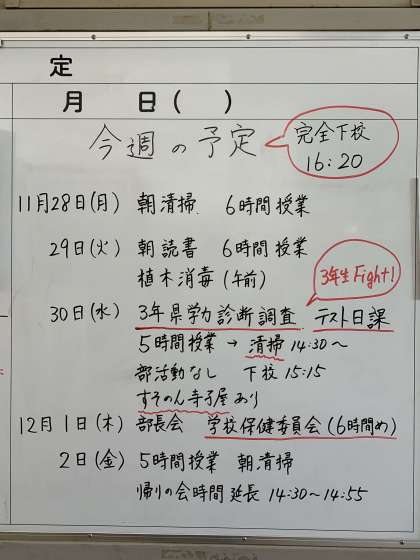 定
月 日( )
今週の予定
完全下校
16:20
11月28日(月) 朝清掃 6時間授業
29日(火) 朝読書 6時間授業
植木消毒(午前)
3年生Fight!
30日(水) 3年県学力診断調査 テスト日課
5時間授業→清掃14:30〜
部活動なし 下校15:15
すそのん寺子屋あり
12月1日(木) 部長会 学校保健委員会(6時間め)
2日(金) 5時間授業 朝清掃
帰りの会時間延長14:30〜14:55